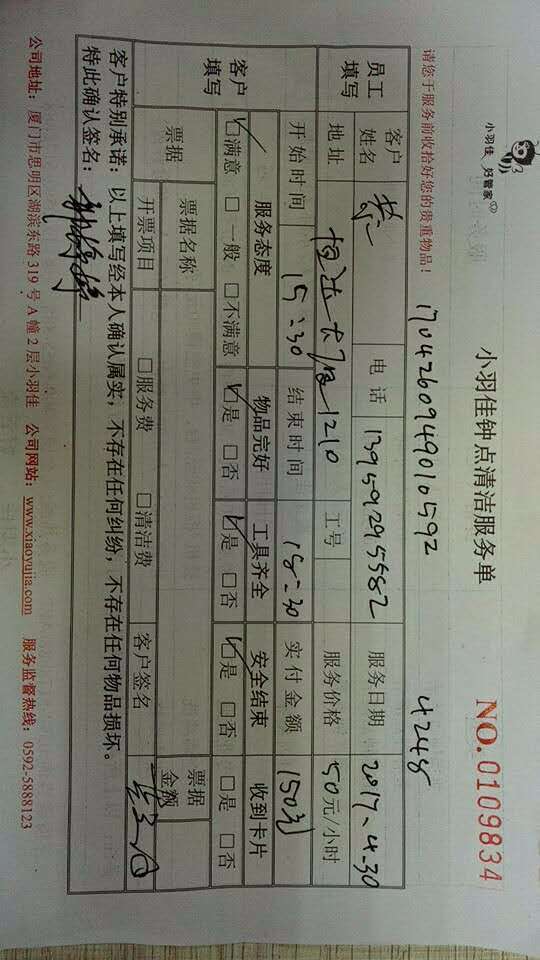 小羽佳 好管家
小羽佳钟点清洁服务单
NO. 0109834
请您于服务前收拾好您的贵重物品!
1704260949010592
4248
员工填写
客户姓名 蔡 电话 13959295582 服务日期 2017.4.30
地址 1210 工号 服务价格 50元/小时
客户填写
开始时间 15:30 结束时间 18:30 实付金额 150
服务态度 物品完好 工具齐全 安全结束 收到卡片
☑满意 □一般 □不满意 ☑是 □否 ☑是 □否 ☑是 □否 □是 □否
票据 票据名称 票据金额
开票项目 □服务费 □清洁费 客户签名
客户特别承诺:以上填写经本人确认属实,不存在任何纠纷,不存在任何物品损坏。
特此确认签名:
公司地址:厦门市思明区湖滨东路319号A幢2层小羽佳 公司网站:www.xiaoyujia.com 服务监督热线:0592-5888123